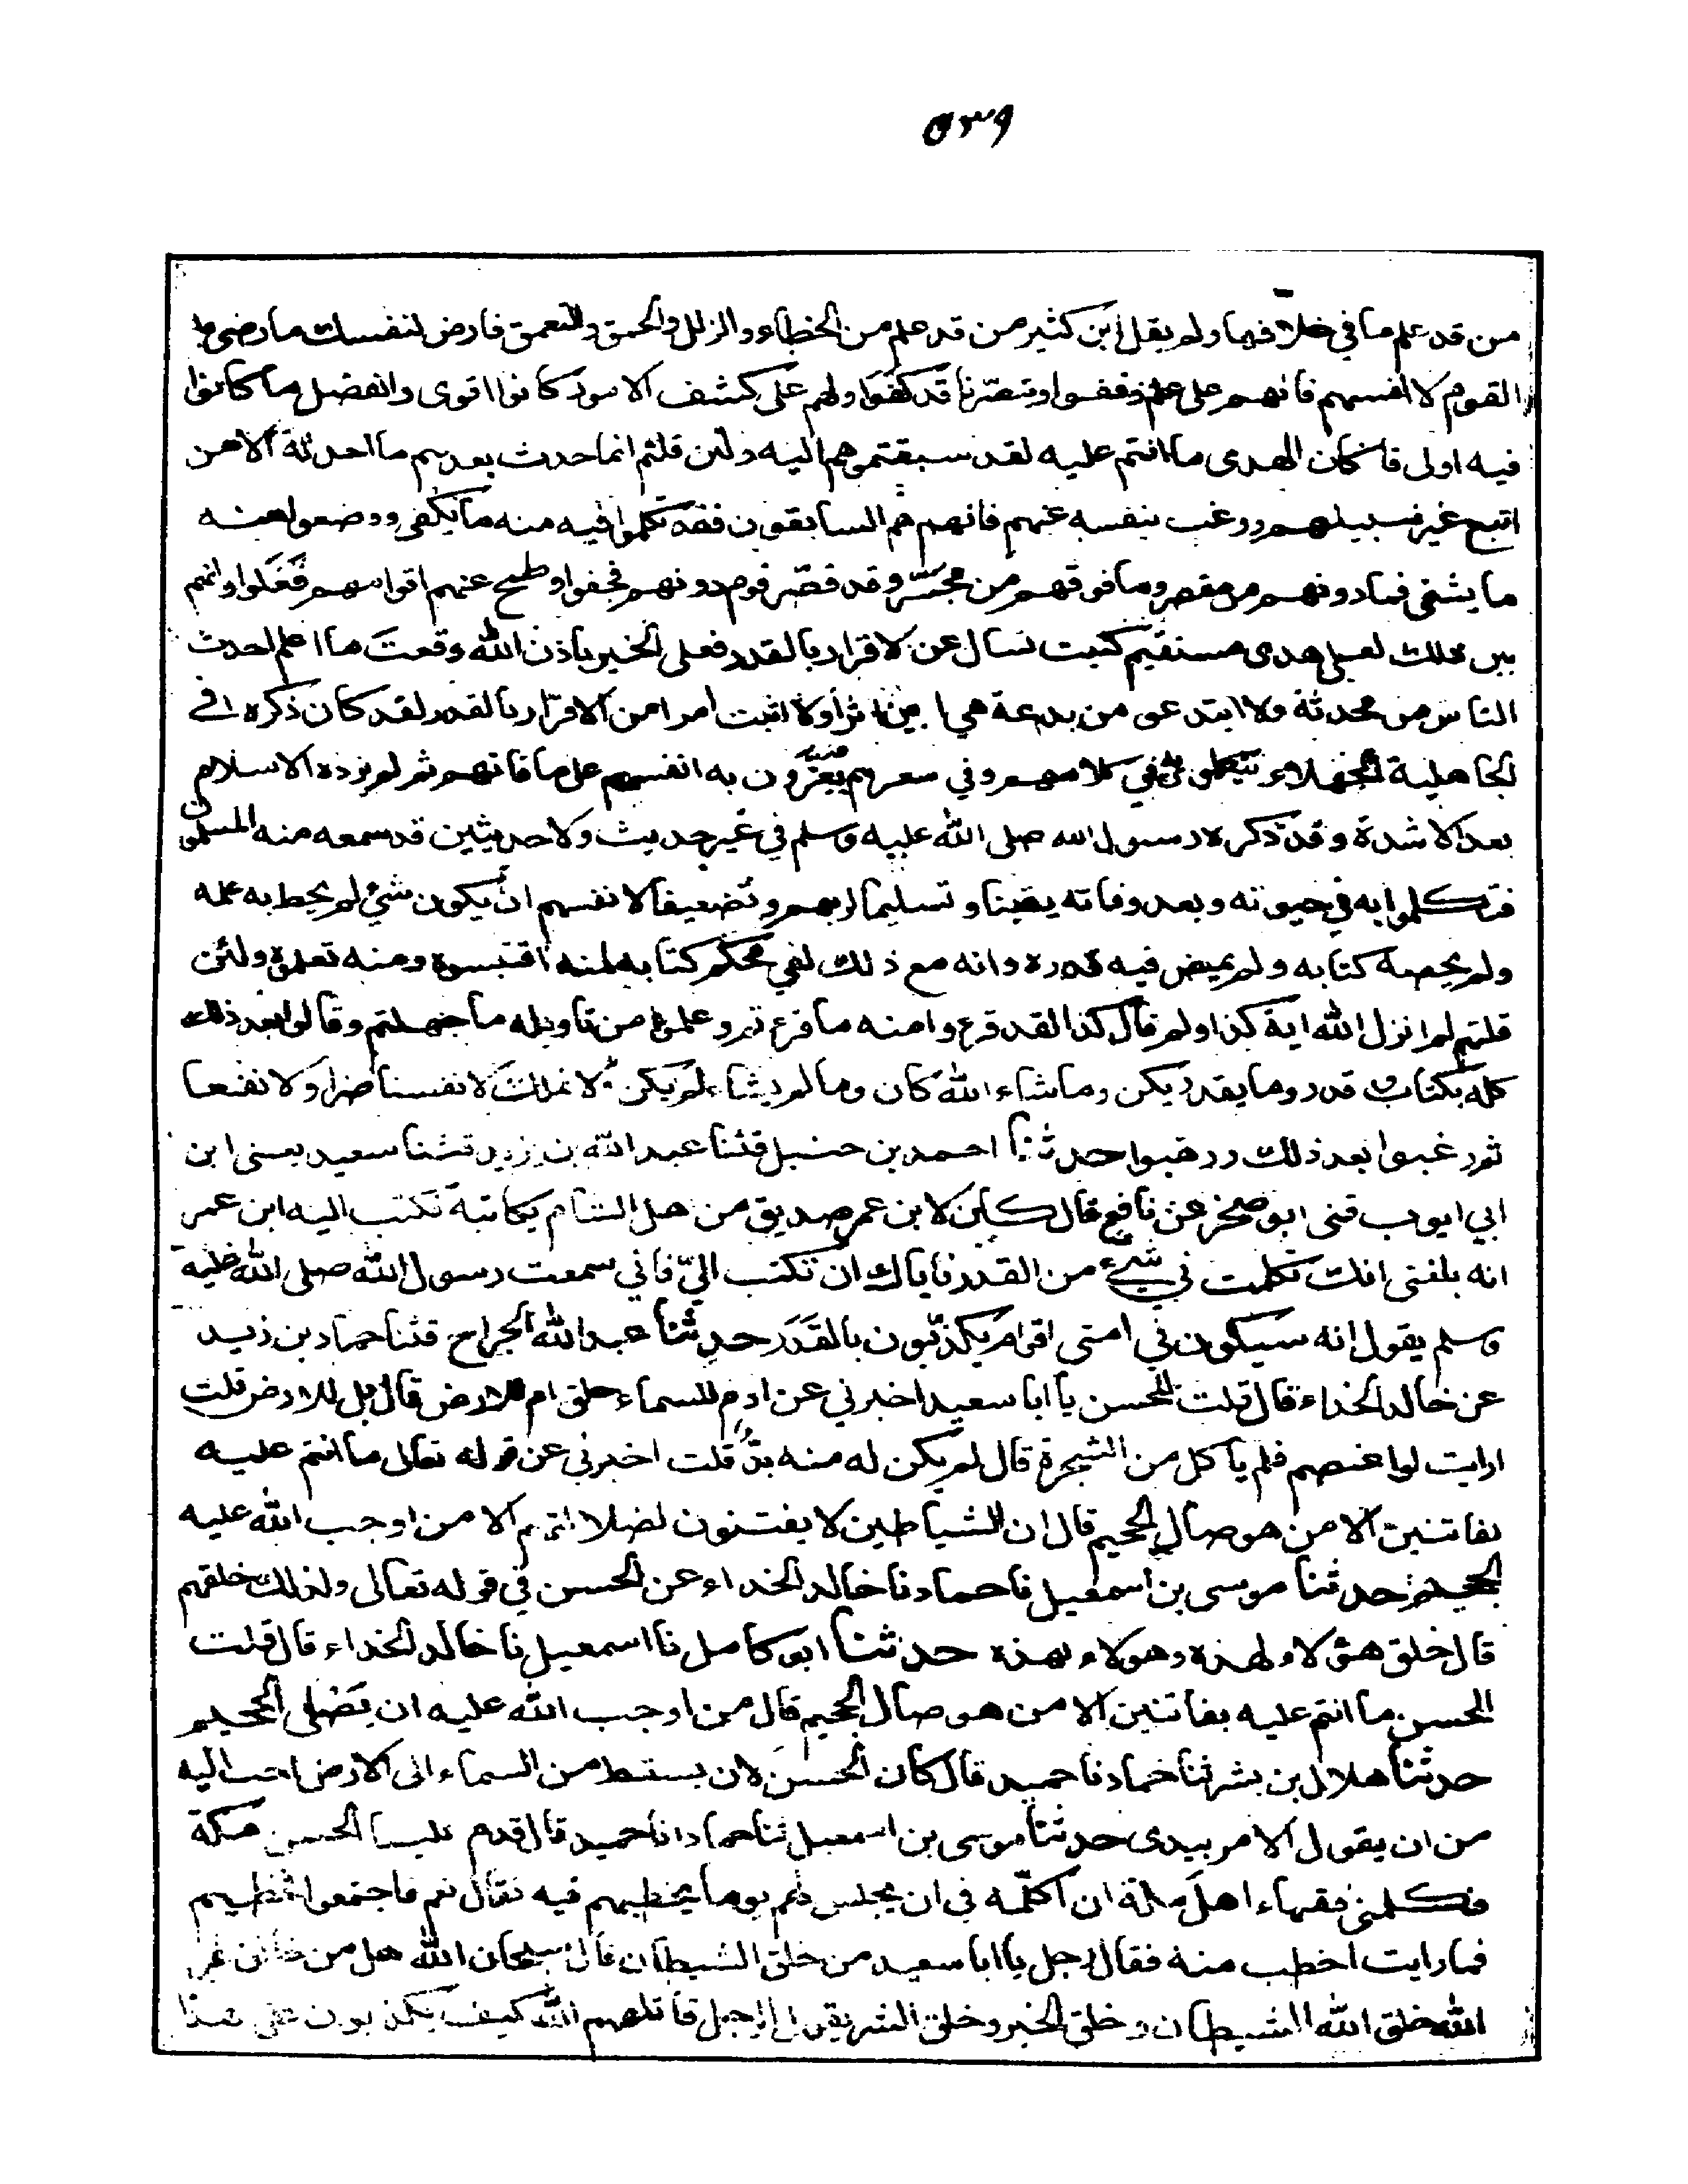 ٥٣٩
من قد علم ما في خلافها ولم يقل ابن كثير من قد علم من الخطاء والزلل والحمق والتعمق فارض لنفسك ما رضى به
القوم لانفسهم فانهم على علم وقفوا وببصر نا قد كفوا ولهم على كشف الامور كانوا اقوى وبفضل ما كانوا
فيه اولى فا كان الهدى ما انتم عليه لقد سبقتموهم اليه ولئن قلتم انما حدث بعدهم ما احدثه الا من
اتبع غير سبيلهم ورغب بنفسه عنهم فانهم هم السابقون فقد تكلموا فيه منه ما يكفى ووصفوا منه
ما يشفى فما دونهم من مقصر وما فوقهم من محسر وقد قصر قوم دونهم فجفوا وطمح عنهم اقوام فغلوا وانهم
بين ذلك لعلى هدى مستقيم كتبت تسال عن الاقرار بالقدر فعلى الخبير باذن الله وقعت ما اعلم احدث
الناس من محدثة ولا ابتدعوا من بدعة هي ابين اثرا ولا اثبت امرا من الاقرار بالقدر لقد كان ذكره في
الجاهلية الجهلاء يتكلمون به في كلامهم وفي شعرهم يعزون به انفسهم على ما فاتهم ثم لم يزده الاسلام
بعد الا شدة وقد ذكره رسول الله صلى الله عليه وسلم في غير حديث ولا حديثين قد سمعه منه المسلمون
فتكلموا به في حيوته وبعد وفاته يقينا وتسليما لربهم وتضعيفا لانفسهم ان يكون شئ لم يحط به علمه
ولم يحصه كتابه ولم يمض فيه قدره وانه مع ذلك لفي محكم كتابه لمنه اقتبسوه ومنه تعلموه ولئن
قلتم لم انزل الله اية كذا ولم قال كذا لقد قرءوا منه ما قرءتم وعلموا من تاويله ما جهلتم وقالوا بعد ذلك
كله بكتاب قدر وما يقدر يكن وما شاء الله كان وما لم يشاء لم يكن ولا نملك لانفسنا ضرا ولا نفعا
ثم رغبوا بعد ذلك ورهبوا حدثنا احمد بن حنبل قثنا عبد الله بن يزيد قثنا سعيد يعنى ابن
ابي ايوب قثنى ابو صخر عن نافع قال كان لابن عمر صديق من اهل الشام يكاتبه فكتب اليه ابن عمر
انه بلغنى انك تكلمت في شئ من القدر فاياك ان تكتب الي فاني سمعت رسول الله صلى الله عليه
وسلم يقول انه سيكون في امتى اقوام يكذبون بالقدر حدثنا عبد الله الجراح قثنا حماد بن زيد
عن خالد الحذاء قال قلت للحسن يا ابا سعيد اخبرني عن ادم للسماء خلق ام للارض قال بل للارض قلت
ارايت لو اعتصم فلم ياكل من الشجرة قال لم يكن له منه بد قلت اخبرني عن قوله تعالى ما انتم عليه
بفاتنين الا من هو صال الجحيم قال ان الشياطين لا يفتنون بضلالتهم الا من اوجب الله عليه
الجحيم حدثنا موسى بن اسمعيل نا حماد نا خالد الحذاء عن الحسن في قوله تعالى ولذلك خلقهم
قال خلق هؤلاء لهذه وهولاء لهذه حدثنا ابو كامل نا اسمعيل نا خالد الحذاء قال قلت
الحسن ما انتم عليه بفاتنين الا من هو صال الجحيم قال من اوجب الله عليه ان يصلى الجحيم
حدثنا هلال بن بشر قثنا حماد نا حميد قال كان الحسن لان يسقط من السماء الى الارض احب اليه
من ان يقول الامر بيدى حدثنا موسى بن اسمعيل ثنا حماد انا حميد قال قدم علينا الحسن مكة
فكلمنى فقهاء اهل مكة ان اكلمه في ان يجلس لهم يوما يخطبهم فيه فقال نعم فاجتمعوا فخطبهم
فما رايت اخطب منه فقال رجل يا ابا سعيد من خلق الشيطان قال سبحان الله هل من خالق غير
الله خلق الله الشيطان وخلق الخير وخلق الشر يقول الرجل قاتلهم الله كيف يكذبون على هذا